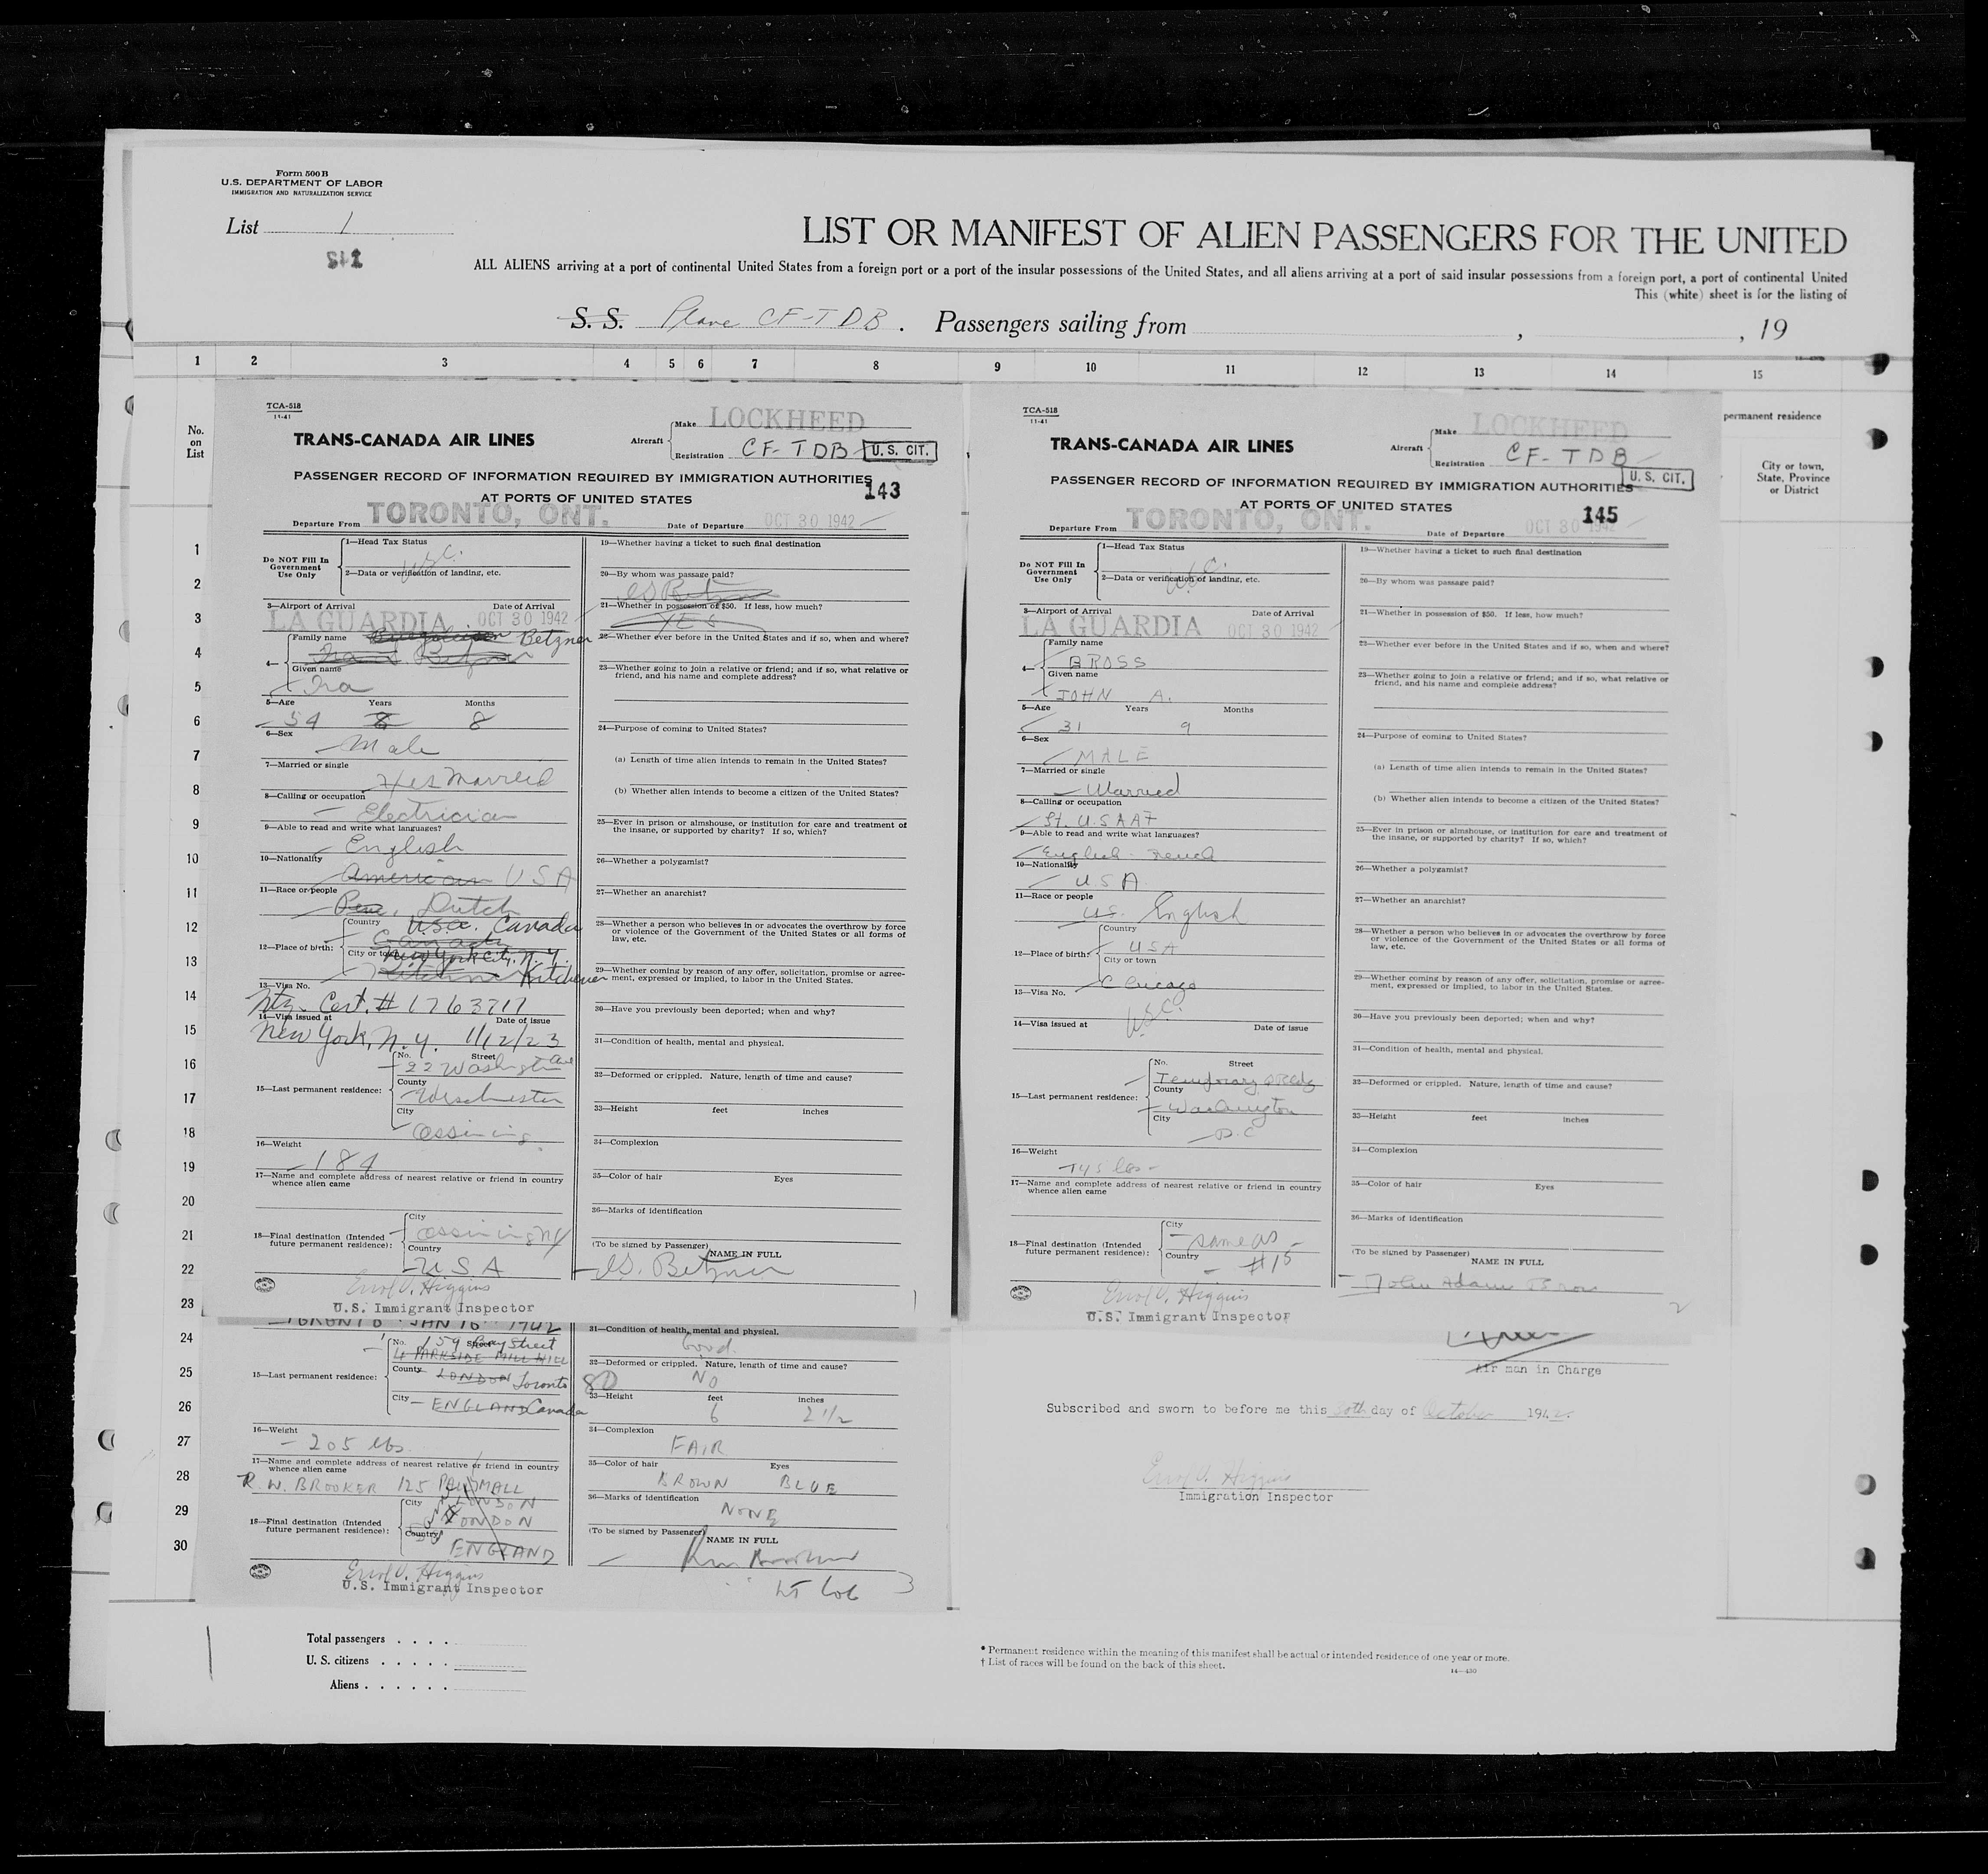 Form 500B
U.S. DEPARTMENT OF LABOR
IMMIGRATION AND NATURALIZATION SERVICE
List 1
LIST OR MANIFEST OF ALIEN PASSENGERS FOR THE UNITED
ALL ALIENS arriving at a port of continental United States from a foreign port or a port of the insular possessions of the United States, and all aliens arriving at a port of said insular possessions from a foreign port, a port of continental United
This (white) sheet is for the listing of
S. S. Plane CF-TDB. Passengers sailing from , , 19
1 2 3 4 5 6 7 8 9 10 11 12 13 14 15
No. on List
permanent residence
City or town, State, Province or District
1
2
3
4
5
6
7
8
9
10
11
12
13
14
15
16
17
18
19
20
21
22
23
24
25
26
27
28
29
30
TCA-518
11-41
TRANS-CANADA AIR LINES
Aircraft
Make LOCKHEED
Registration CF-TDB
U. S. CIT.
PASSENGER RECORD OF INFORMATION REQUIRED BY IMMIGRATION AUTHORITIES
AT PORTS OF UNITED STATES
143
Departure From TORONTO, ONT. Date of Departure OCT 30 1942
Do NOT Fill In Government Use Only
1—Head Tax Status
U.S.C.
2—Data or verification of landing, etc.
3—Airport of Arrival Date of Arrival
LA GUARDIA OCT 30 1942
4—
Family name Betzner
Ira S. Betzner
Given name
Ira
5—Age Years Months
54 8 8
6—Sex
Male
7—Married or single
Yes Married
8—Calling or occupation
Electrician
9—Able to read and write what languages?
English
10—Nationality
American USA
11—Race or people
Dutch
12—Place of birth:
Country U.S.A. Canada
Canada
City or town New York City, N.Y.
Kitchener
13—Visa No.
Ntz. Cert. # 1763717
14—Visa issued at Date of issue
New York, N.Y. 1/12/23
15—Last permanent residence:
No. Street
22 Washington Ave
County
Weschester
City
Ossining
16—Weight
184
17—Name and complete address of nearest relative or friend in country
whence alien came
18—Final destination (Intended
future permanent residence):
City
Ossining NY
Country
USA
Errol V. Higgins
U.S. Immigrant Inspector
19—Whether having a ticket to such final destination
20—By whom was passage paid?
IS Betzner
21—Whether in possession of $50. If less, how much?
YES
22—Whether ever before in the United States and if so, when and where?
23—Whether going to join a relative or friend; and if so, what relative or
friend, and his name and complete address?
24—Purpose of coming to United States?
(a) Length of time alien intends to remain in the United States?
(b) Whether alien intends to become a citizen of the United States?
25—Ever in prison or almshouse, or institution for care and treatment of
the insane, or supported by charity? If so, which?
26—Whether a polygamist?
27—Whether an anarchist?
28—Whether a person who believes in or advocates the overthrow by force
or violence of the Government of the United States or all forms of
law, etc.
29—Whether coming by reason of any offer, solicitation, promise or agree-
ment, expressed or implied, to labor in the United States.
30—Have you previously been deported; when and why?
31—Condition of health, mental and physical.
32—Deformed or crippled. Nature, length of time and cause?
33—Height feet inches
34—Complexion
35—Color of hair Eyes
36—Marks of identification
(To be signed by Passenger)
NAME IN FULL
I.S. Betzner
1
TCA-518
11-41
TRANS-CANADA AIR LINES
Aircraft
Make LOCKHEED
Registration CF-TDB
U. S. CIT.
PASSENGER RECORD OF INFORMATION REQUIRED BY IMMIGRATION AUTHORITIES
AT PORTS OF UNITED STATES
145
Departure From TORONTO, ONT. Date of Departure OCT 30 1942
Do NOT Fill In Government Use Only
1—Head Tax Status
U.S.C.
2—Data or verification of landing, etc.
3—Airport of Arrival Date of Arrival
LA GUARDIA OCT 30 1942
4—
Family name
BROSS
Given name
JOHN A.
5—Age Years Months
31 9
6—Sex
MALE
7—Married or single
Married
8—Calling or occupation
Lt. U.S.AAF
9—Able to read and write what languages?
English - French
10—Nationality
U.S.A.
11—Race or people
U.S. English
12—Place of birth:
Country
USA
City or town
Chicago
13—Visa No.
U.S.C.
14—Visa issued at Date of issue
15—Last permanent residence:
No. Street
Temporary Bldg
County
Washington
City
D.C.
16—Weight
145 lbs-
17—Name and complete address of nearest relative or friend in country
whence alien came
18—Final destination (Intended
future permanent residence):
City
same as
Country
#15
Errol V. Higgins
U.S. Immigrant Inspector
19—Whether having a ticket to such final destination
20—By whom was passage paid?
21—Whether in possession of $50. If less, how much?
22—Whether ever before in the United States and if so, when and where?
23—Whether going to join a relative or friend; and if so, what relative or
friend, and his name and complete address?
24—Purpose of coming to United States?
(a) Length of time alien intends to remain in the United States?
(b) Whether alien intends to become a citizen of the United States?
25—Ever in prison or almshouse, or institution for care and treatment of
the insane, or supported by charity? If so, which?
26—Whether a polygamist?
27—Whether an anarchist?
28—Whether a person who believes in or advocates the overthrow by force
or violence of the Government of the United States or all forms of
law, etc.
29—Whether coming by reason of any offer, solicitation, promise or agree-
ment, expressed or implied, to labor in the United States.
30—Have you previously been deported; when and why?
31—Condition of health, mental and physical.
32—Deformed or crippled. Nature, length of time and cause?
33—Height feet inches
34—Complexion
35—Color of hair Eyes
36—Marks of identification
(To be signed by Passenger)
NAME IN FULL
John Adams Bross
2
TORONTO JAN 16 1942
15—Last permanent residence:
No. 159 Bay Street
4 PARKSIDE MILL HILL
County LONDON Toronto
City ENGLAND Canada
16—Weight
205 lbs.
17—Name and complete address of nearest relative or friend in country
whence alien came
R. W. BROOKER 125 PALL MALL
LONDON
18—Final destination (Intended
future permanent residence):
City LONDON
Country
ENGLAND
Errol V. Higgins
U.S. Immigrant Inspector
31—Condition of health, mental and physical.
Good.
32—Deformed or crippled. Nature, length of time and cause?
NO
33—Height feet inches
6 2 1/2
34—Complexion
FAIR
35—Color of hair Eyes
BROWN BLUE
36—Marks of identification
NONE
(To be signed by Passenger)
NAME IN FULL
Lt Col
3
Air man in Charge
Subscribed and sworn to before me this 30th day of October 1942.
Errol V. Higgins
Immigration Inspector
Total passengers . . . .
U. S. citizens . . . . .
Aliens . . . . . .
* Permanent residence within the meaning of this manifest shall be actual or intended residence of one year or more.
† List of races will be found on the back of this sheet.
14—430